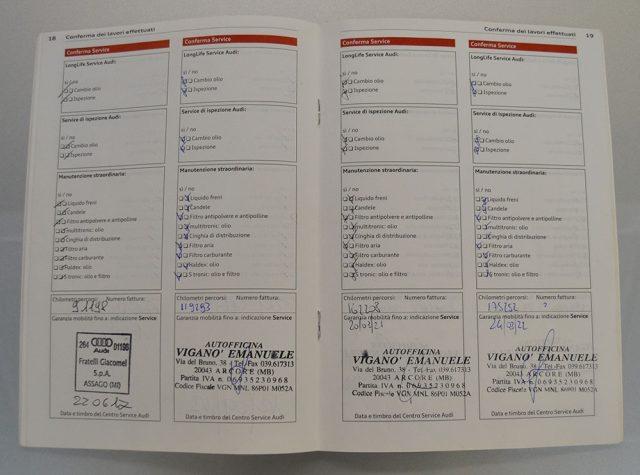 18 Conferma dei lavori effettuati
Conferma Service
LongLife Service Audi:
sì / no
Cambio olio
Ispezione
Service di ispezione Audi:
sì / no
Cambio olio
Ispezione
Manutenzione straordinaria:
sì / no
Liquido freni
Candele
Filtro antipolvere e antipolline
multitronic: olio
Cinghia di distribuzione
Filtro aria
Filtro carburante
Haldex: olio
S tronic: olio e filtro
Chilometri percorsi: Numero fattura:
91198
Garanzia mobilità fino a: indicazione Service
264 D1190
Audi
Fratelli Giacomel
S.p.A.
ASSAGO (MI)
Data e timbro del Centro Service Audi
Conferma Service
LongLife Service Audi:
sì / no
Cambio olio
Ispezione
Service di ispezione Audi:
sì / no
Cambio olio
Ispezione
Manutenzione straordinaria:
sì / no
Liquido freni
Candele
Filtro antipolvere e antipolline
multitronic: olio
Cinghia di distribuzione
Filtro aria
Filtro carburante
Haldex: olio
S tronic: olio e filtro
Chilometri percorsi: Numero fattura:
119293
Garanzia mobilità fino a: indicazione Service
AUTOFFICINA
VIGANO' EMANUELE
Via del Bruno, 38 - Tel./Fax 039.617313
20043 ARCORE (MB)
Partita IVA n. 06935230968
Codice Fiscale VGN MNL 86P01 M052A
Data e timbro del Centro Service Audi
Conferma dei lavori effettuati 19
Conferma Service
LongLife Service Audi:
sì / no
Cambio olio
Ispezione
Service di ispezione Audi:
sì / no
Cambio olio
Ispezione
Manutenzione straordinaria:
sì / no
Liquido freni
Candele
Filtro antipolvere e antipolline
multitronic: olio
Cinghia di distribuzione
Filtro aria
Filtro carburante
Haldex: olio
S tronic: olio e filtro
Chilometri percorsi: Numero fattura:
162208
Garanzia mobilità fino a: indicazione Service
20/03/21
AUTOFFICINA
VIGANO' EMANUELE
Via del Bruno, 38 - Tel./Fax 039.617313
20043 ARCORE (MB)
Partita IVA n. 06935230968
Codice Fiscale VGN MNL 86P01 M052A
Data e timbro del Centro Service Audi
Conferma Service
LongLife Service Audi:
sì / no
Cambio olio
Ispezione
Service di ispezione Audi:
sì / no
Cambio olio
Ispezione
Manutenzione straordinaria:
sì / no
Liquido freni
Candele
Filtro antipolvere e antipolline
multitronic: olio
Cinghia di distribuzione
Filtro aria
Filtro carburante
Haldex: olio
S tronic: olio e filtro
Chilometri percorsi: Numero fattura:
175252 ?
Garanzia mobilità fino a: indicazione Service
AUTOFFICINA
VIGANO' EMANUELE
Via del Bruno, 38 - Tel./Fax 039.617313
20043 ARCORE (MB)
Partita IVA n. 06935230968
Codice Fiscale VGN MNL 86P01 M052A
Data e timbro del Centro Service Audi